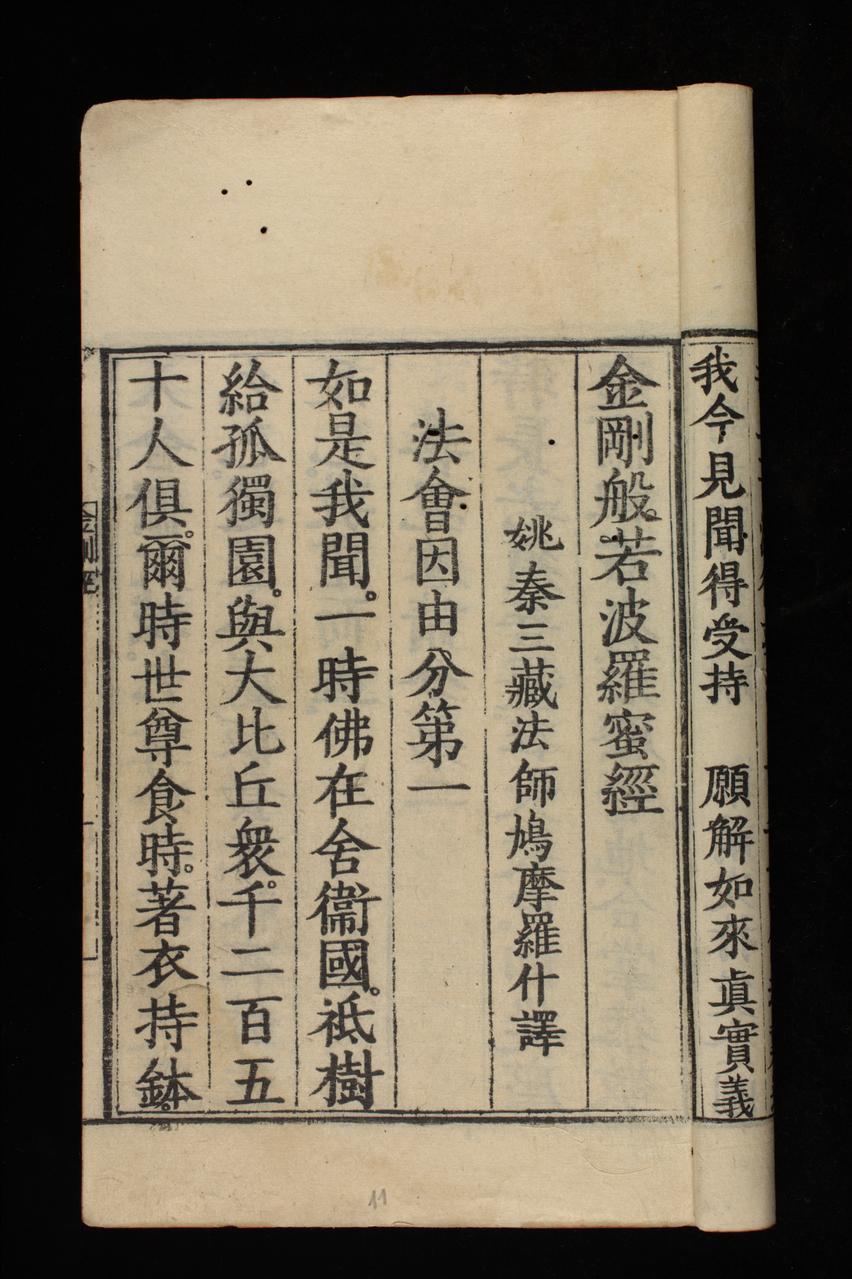 我今見聞得受持　願解如來眞實義
金剛般若波羅蜜經
姚秦三藏法師鳩摩羅什譯
法會因由分第一
如是我聞。一時佛在舍衞國。祗樹
給孤獨園。與大比丘衆。千二百五
十人俱。爾時世尊食時。著衣持鉢。
11